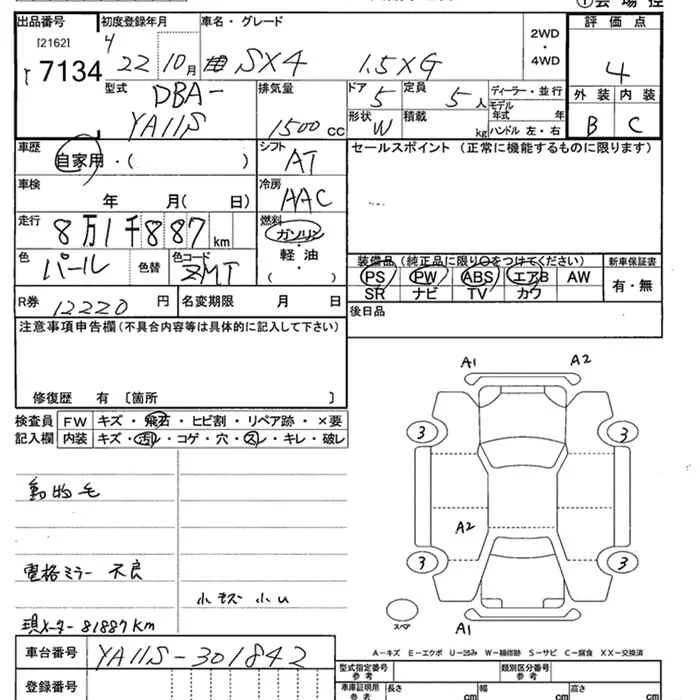 出品番号 初度登録年月 車名・グレード 2WD ・ 4WD 評価点
[2162]
7134 22 10月 SX4 1.5XG 4
型式 DBA- YA11S 排気量 1500 cc
ドア 5 定員 5人 ディーラー・並行
モデル年式 年式
形状 W 積載 kg ハンドル 左・右
外装 内装
B C
車歴 自家用・( ) シフト AT
セールスポイント (正常に機能するものに限ります)
車検 年 月( 日) 冷房 AAC
走行 8万1千887 km 燃料 ガソリン・軽油・( )
色 パール 色替 色コード ZMT
装備品 (純正品に限り○をつけてください) 新車保証書
PS PW ABS エアB AW 有・無
SR ナビ TV カワ
R券 12220 円 名変期限 月 日
後日品
注意事項申告欄(不具合内容等は具体的に記入して下さい)
修復歴 有 〔箇所 〕
検査員記入欄
FW キズ・飛石・ヒビ割・リペア跡・×要
内装 キズ・汚レ・コゲ・穴・スレ・キレ・破レ
動物毛
電格ミラー 不良
小キズ 小U
現メーター 81887km
A1 A2
3 3
A2
3 3
スペア
A1
A-キズ E-エクボ U-凹み W-補修跡 S-サビ C-腐食 XX-交換済
車台番号 YA11S-301842
登録番号
型式指定番号 参考 類別区分番号 参考
車庫証明用 参考 長さ cm 幅 cm 高さ cm